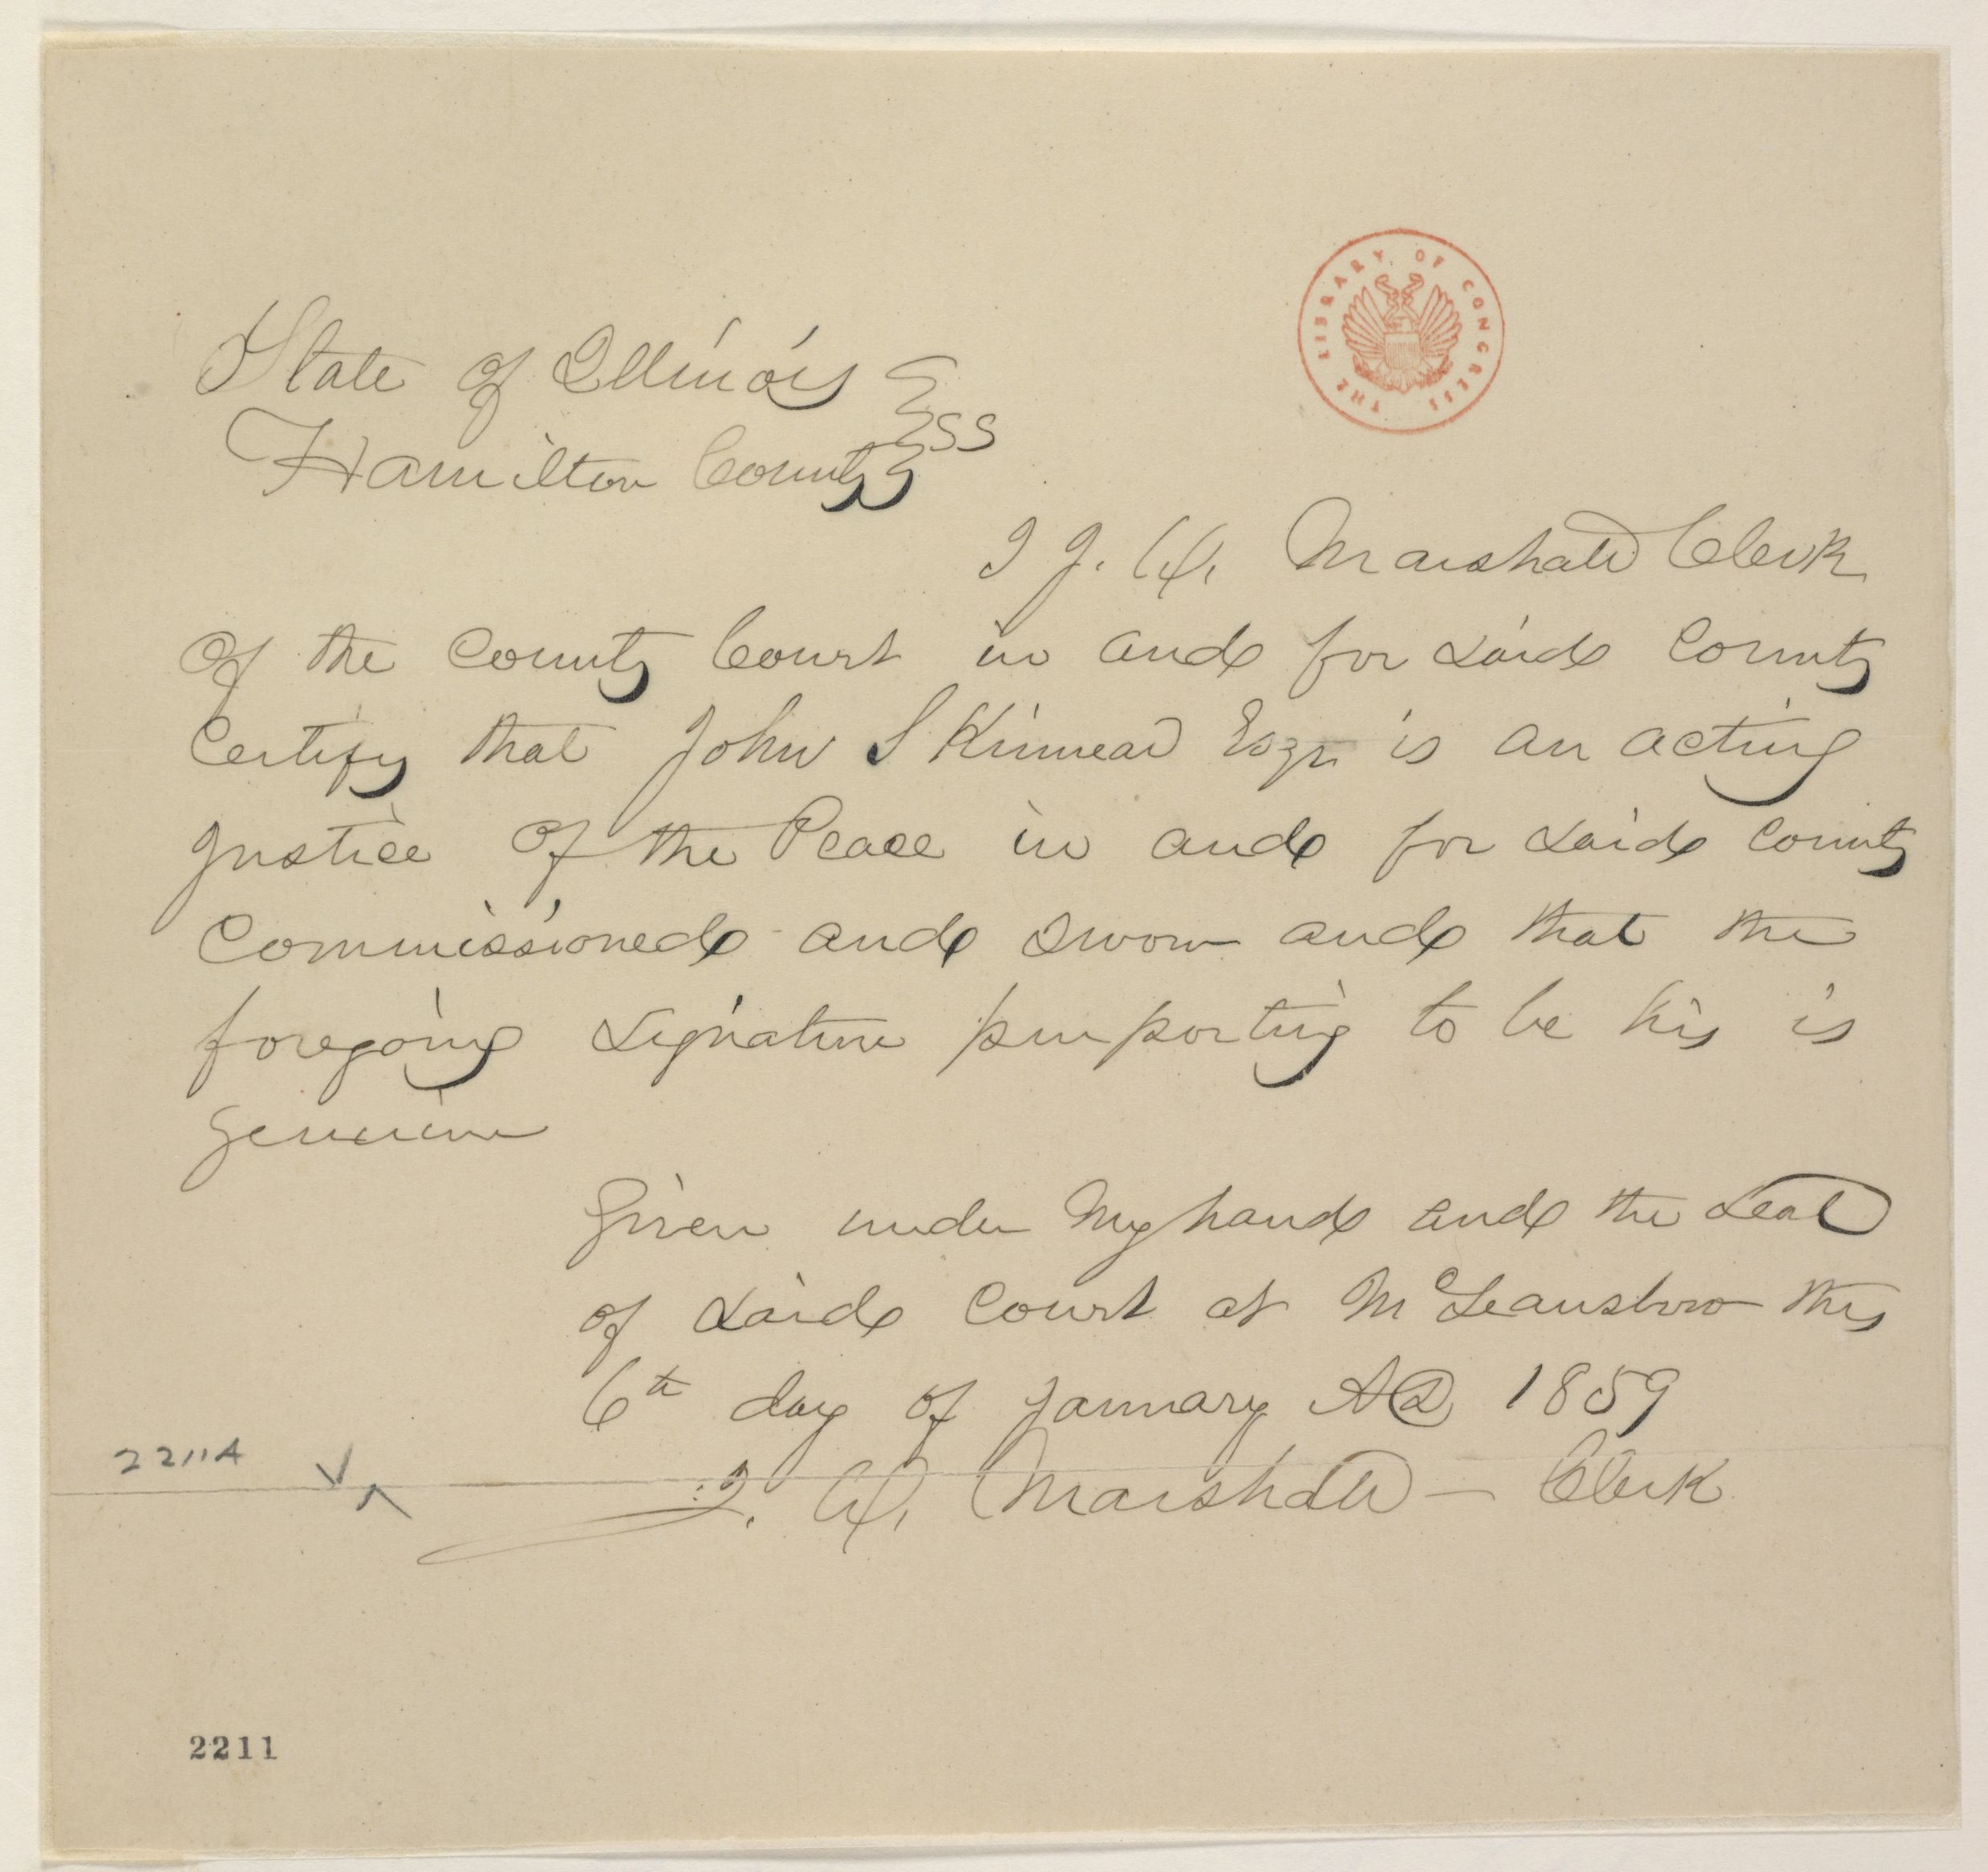 THE LIBRARY OF CONGRESS
State of Illinois
SS
Hamilton County
I J. W. Marshall Clerk
Of the County Court in and for said County
Certify that John S Kinnear Esqr is an acting
Justice Of the Peace in and for said County
Commissioned and sworn and that the
foregoing signature purporting to be his is
genuine
Given under My hand and the seal
of said Court at McLeansboro this
6th day of January AD 1859
J. W. Marshall — Clerk
2211A
2211